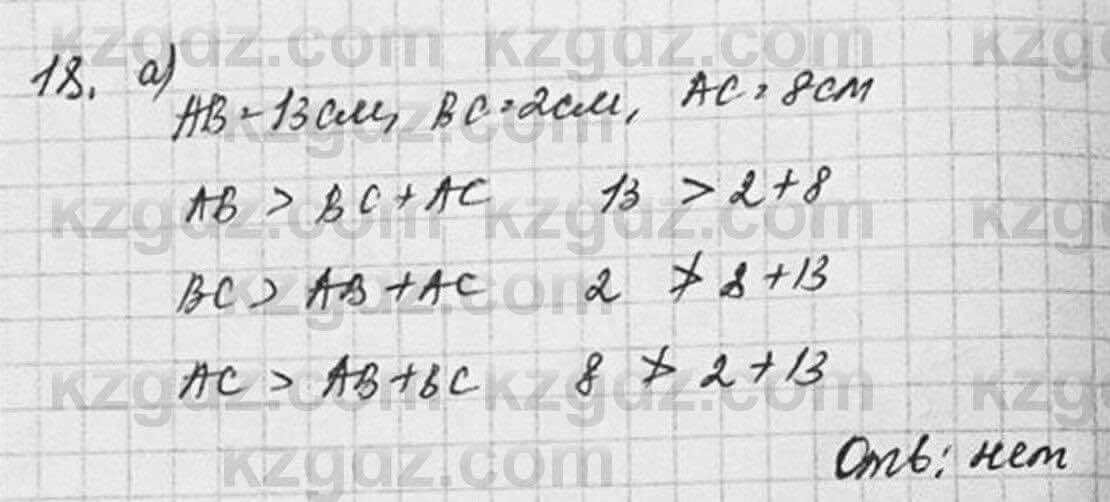 kzgdz.com kzgdz.com kzgdz
18. а)
AB = 13 см, BC = 2 см, AC = 8 см
kzgdz.com kzgdz.com
AB > BC + AC 13 > 2 + 8
kzgdz.com kzgdz.com kzgdz
BC > AB + AC 2 ≯ 8 + 13
kzgdz.com kzgdz.com
AC > AB + BC 8 ≯ 2 + 13
kzgdz.com kzgdz.com kzgdz
Отв: нет
kzgdz.com kzgdz.com